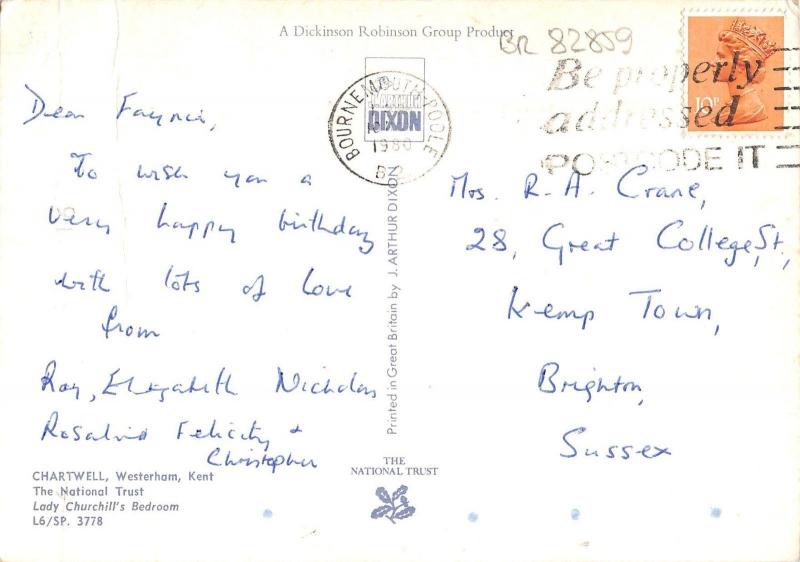 A Dickinson Robinson Group Product
BR 82859
BOURNEMOUTH-POOLE
1980
Be properly
addressed
POSTCODE IT
10P
DIXON
Dear
To wish you a
very happy birthday
with lots of love
from
Ray, Elizabeth Nicholas
Rosalind Felicity &
Christopher
CHARTWELL, Westerham, Kent
The National Trust
Lady Churchill's Bedroom
L6/SP. 3778
Printed in Great Britain by J. ARTHUR DIXON
THE
NATIONAL TRUST
Mrs. R. A. Crane,
28, Great College St,
Kemp Town,
Brighton,
Sussex